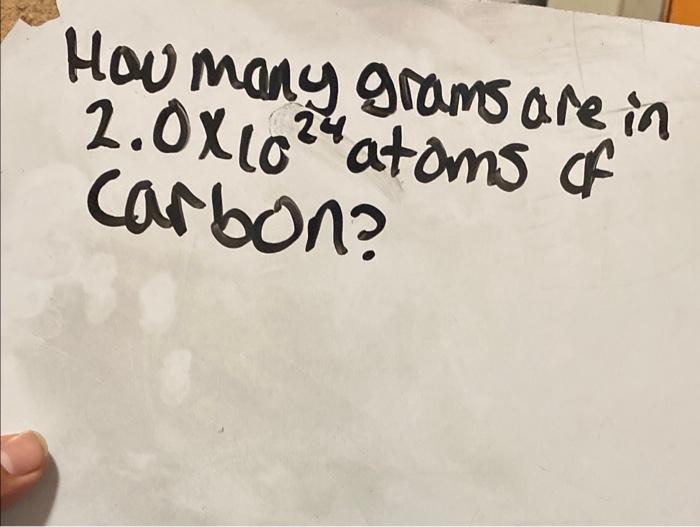 How many grams are in
2.0X10²⁴ atoms of
carbon?